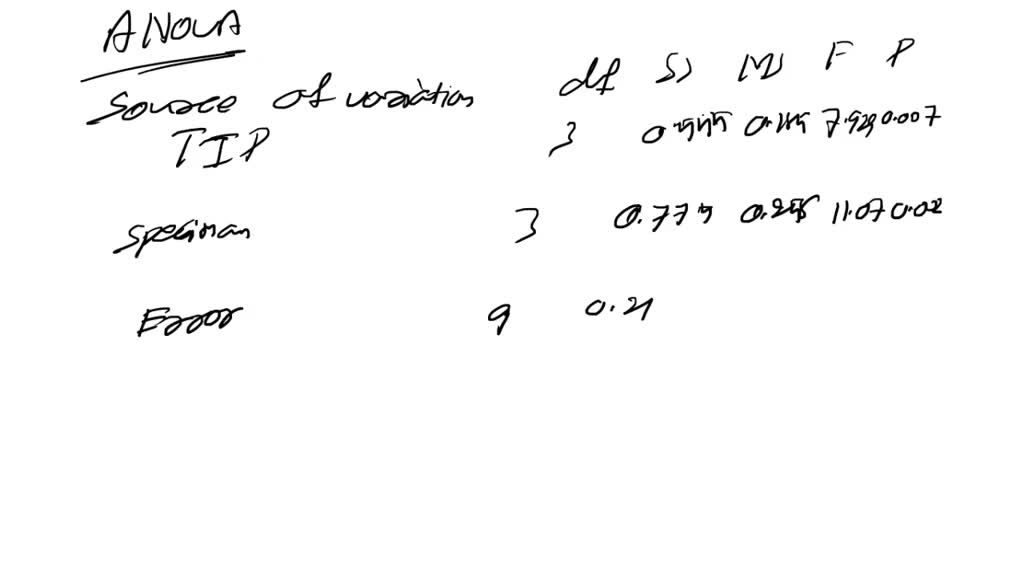 ANOVA
Source of variation df SS MS F P
TIP 3 7.929 0.007
specimen 3 0.775 11.07 0.02
Error 9 0.21